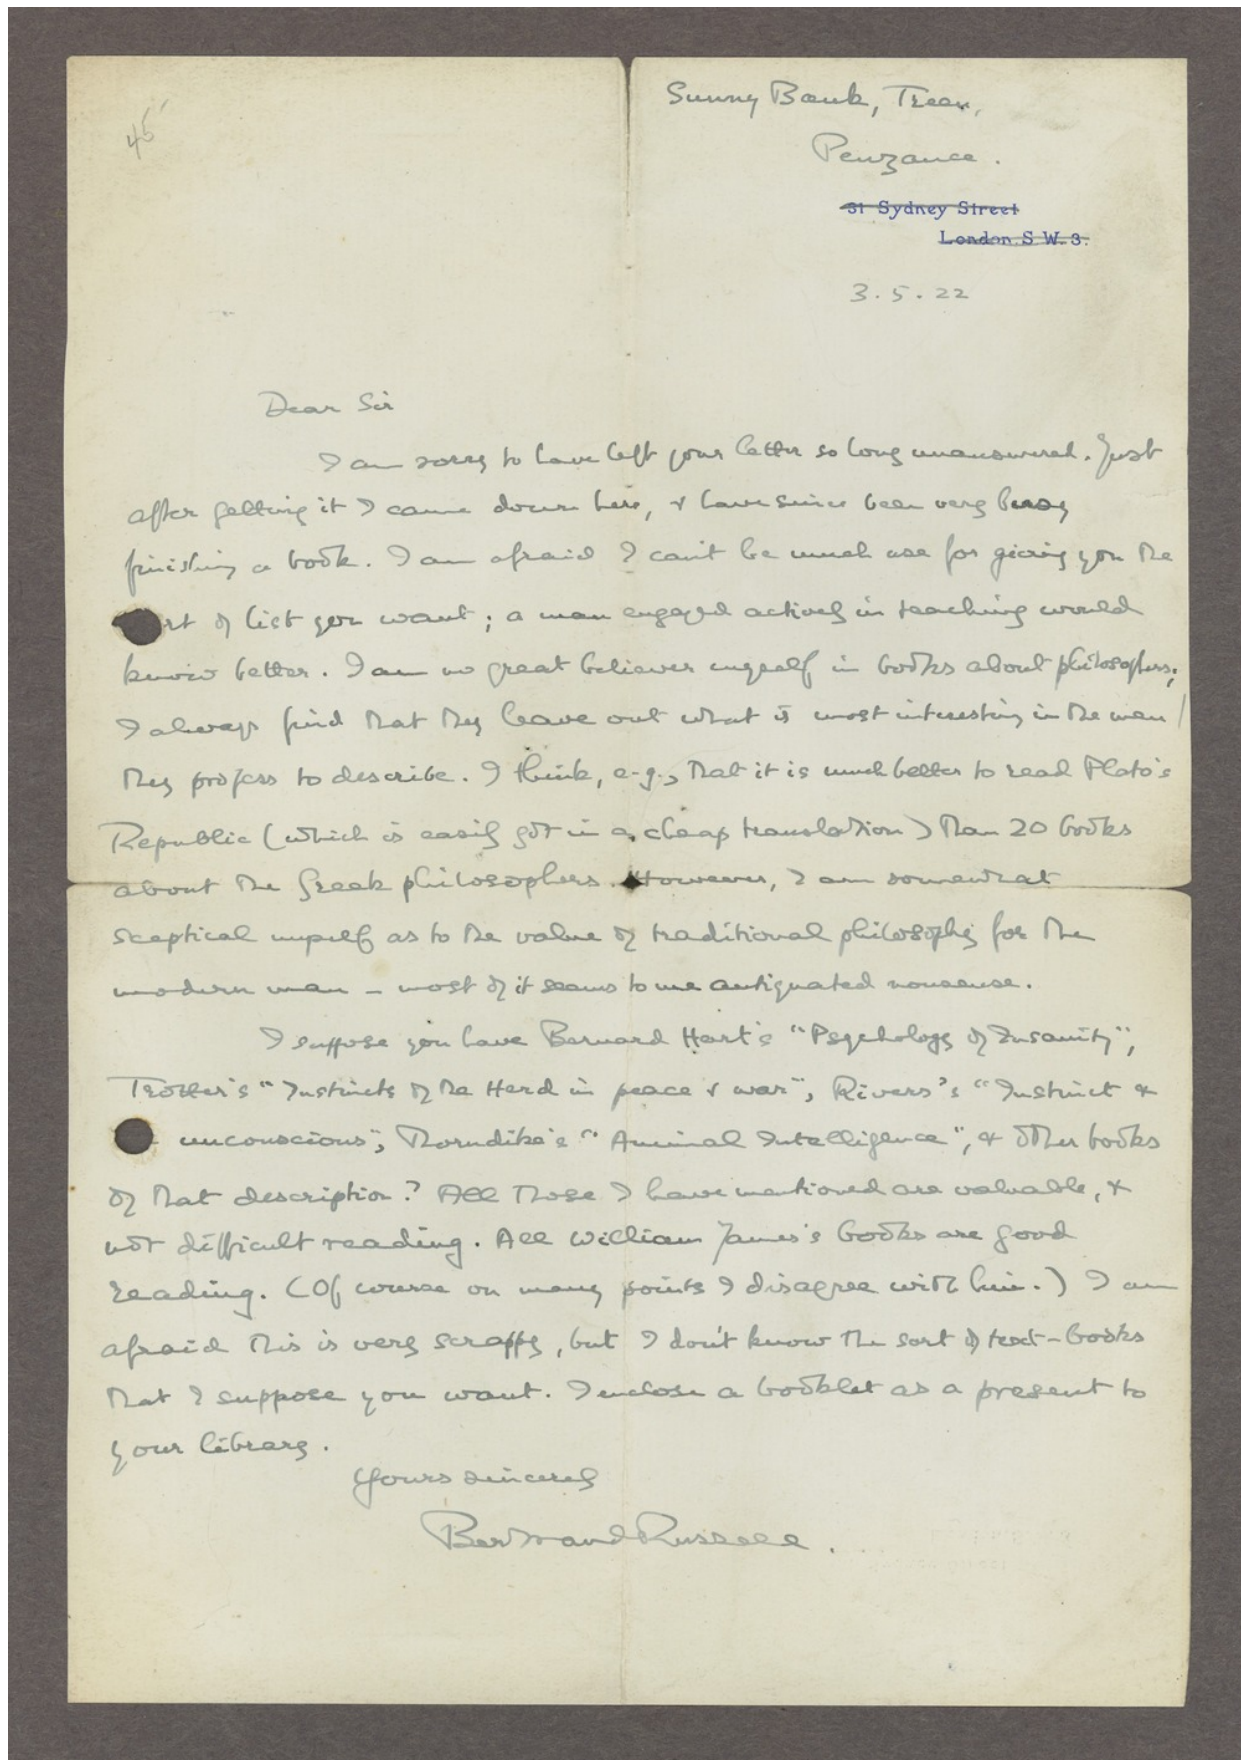 45
Sunny Bank, Treen,
Penzance.
31 Sydney Street
London S.W.3.
3.5.22
Dear Sir
I am sorry to have left your letter so long unanswered. Just
after getting it I came down here, & have since been very busy
finishing a book. I am afraid I can't be much use for giving you the
rt of list you want; a man engaged actively in teaching would
know better. I am no great believer myself in books about philosophers;
I always find that they leave out what is most interesting in the men
they profess to describe. I think, e.g., that it is much better to read Plato's
Republic (which is easily got in a cheap translation) than 20 books
about the Greek philosophers. However, I am somewhat
sceptical myself as to the value of traditional philosophy for the
modern man – most of it seems to me antiquated nonsense.
I suppose you have Bernard Hart's "Psychology of Insanity",
Trotter's "Instincts of the Herd in peace & war", Rivers's "Instinct &
unconscious", Thorndike's "Animal Intelligence", & other books
of that description? All those I have mentioned are valuable, &
not difficult reading. All William James's books are good
reading. (Of course on many points I disagree with him.) I am
afraid this is very scrappy, but I don't know the sort of text-books
that I suppose you want. I enclose a booklet as a present to
your library.
Yours sincerely
Bertrand Russell.